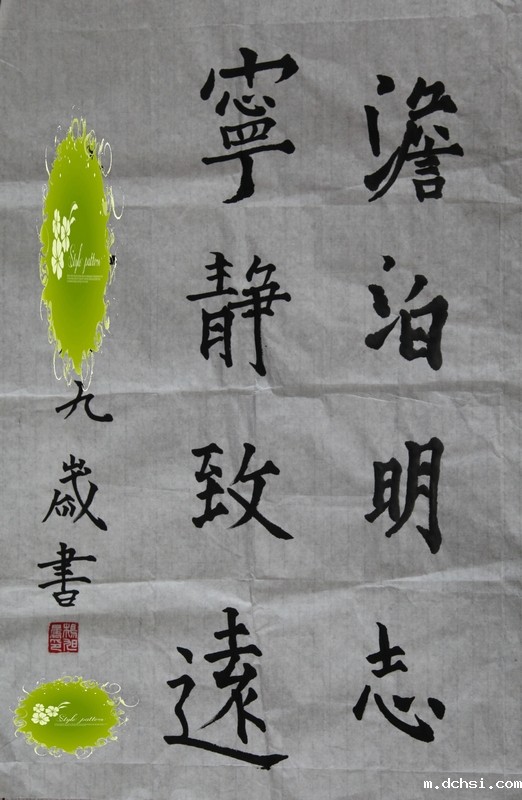 澹泊明志
寧靜致遠
九歲書
Style pattern
Style pattern
m.dchsi.com